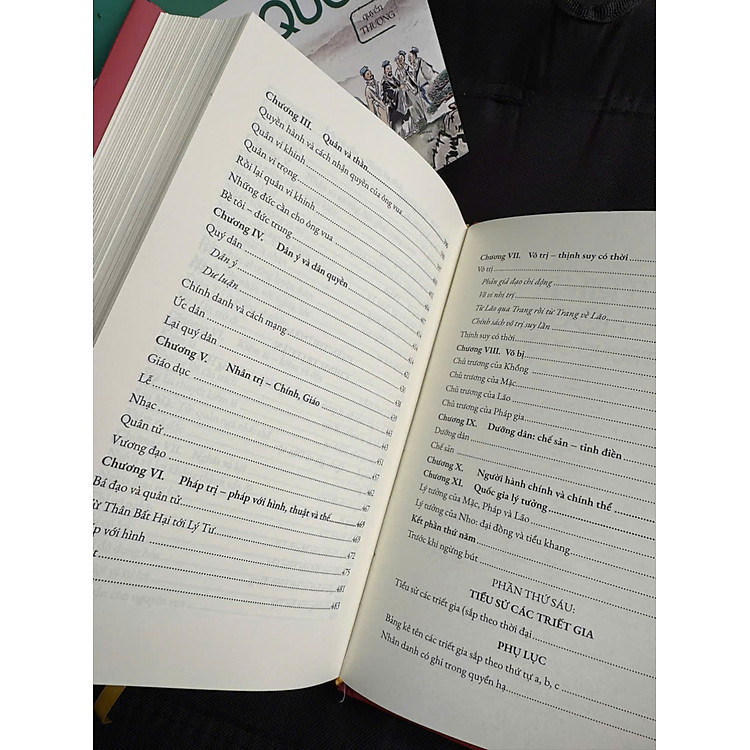 QUỐ
QUYỂN
THƯỢNG
Chương III. Quân và thần
Quyền hành và cách nhận quyền của ông vua
Quân vi khinh
Quân vi trọng
Rồi lại quân vi khinh
Những đức cần cho ông vua
Bề tôi – đức trung
Chương IV. Dân ý và dân quyền
Quý dân
Dân ý
Dư luận
Chính danh và cách mạng
Ức dân
Lại quý dân
Chương V. Nhân trị – Chính, Giáo
Giáo dục
Lễ
Nhạc
Quân tử
Vương đạo
Chương VI. Pháp trị – pháp với hình, thuật và thế 469
Bá đạo và quân tử 463
Từ Thân Bất Hại tới Lý Tư 472
áp với hình 475
481
483
Chương VII. Vô trị – thịnh suy có thời
Vô trị
Phản giả đạo chi động
Vô vi nhi trị
Từ Lão qua Trang rồi từ Trang về Lão
Chính sách vô trị suy lần
Thịnh suy có thời
Chương VIII. Võ bị
Chủ trương của Khổng
Chủ trương của Mặc
Chủ trương của Lão
Chủ trương của Pháp gia
Chương IX. Dưỡng dân: chế sản – tỉnh điền
Dưỡng dân
Chế sản
Chương X. Người hành chính và chính thể
Chương XI. Quốc gia lý tưởng
Lý tưởng của Mặc, Pháp và Lão
Lý tưởng của Nho: đại đồng và tiểu khang
Kết phần thứ năm
Trước khi ngừng bút
PHẦN THỨ SÁU:
TIỂU SỬ CÁC TRIẾT GIA
Tiểu sử các triết gia (sắp theo thời đại
PHỤ LỤC
Bảng kê tên các triết gia sắp theo thứ tự a, b, c
Nhân danh có ghi trong quyển hạ